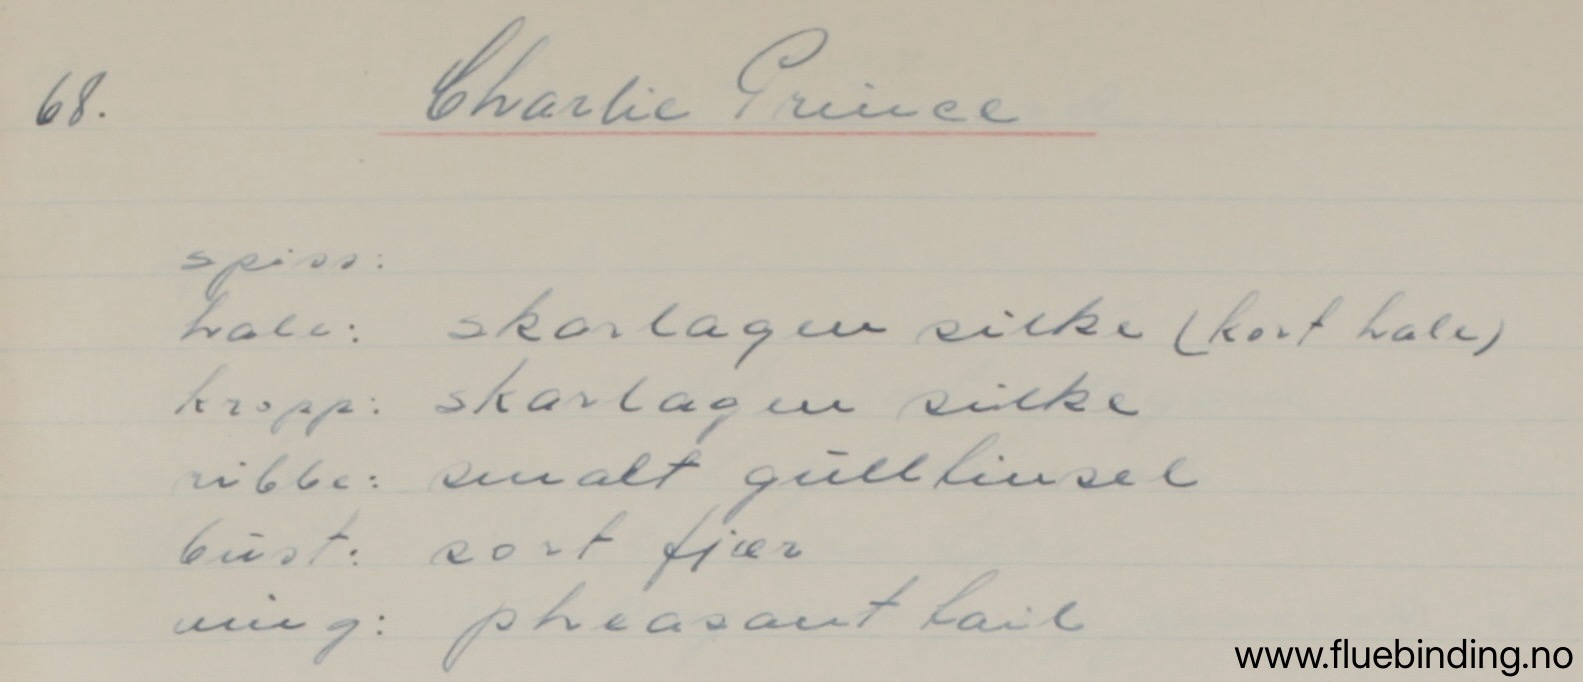 68. Charlie Prince
spiss:
hale: skarlagen silke (kort hale)
kropp: skarlagen silke
ribbe: smalt gulltinsel
bust: sort fjær
ving: pheasant tail
www.fluebinding.no